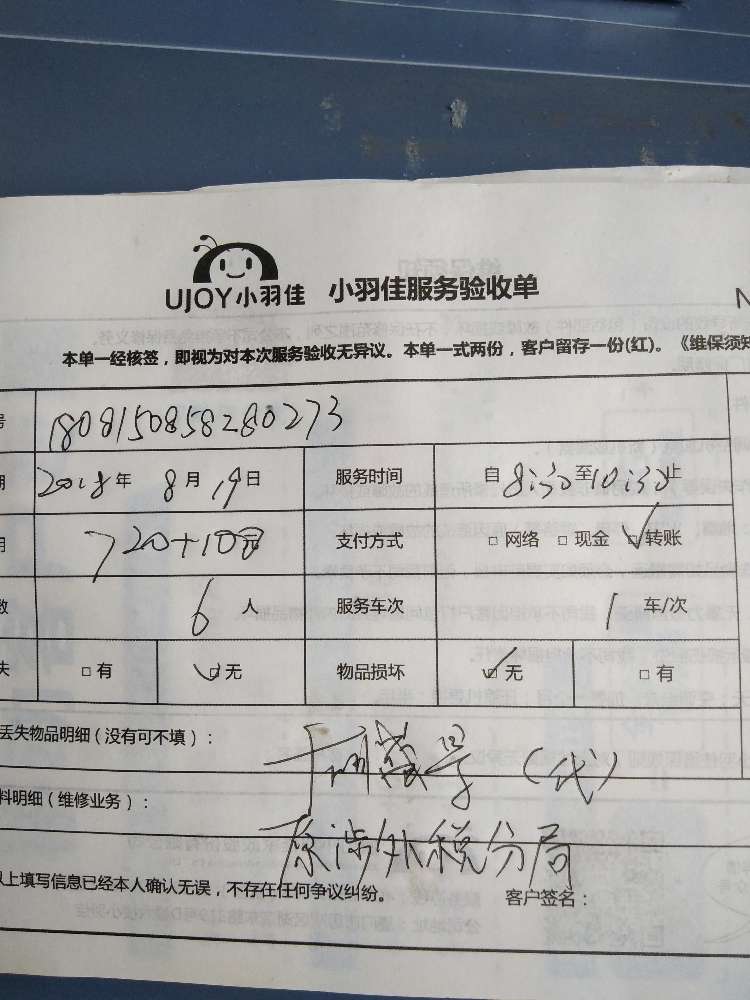 UJOY小羽佳 小羽佳服务验收单
N
本单一经核签，即视为对本次服务验收无异议。本单一式两份，客户留存一份(红)。《维保须知
号 1808150858280273
期 2018年 8月19日 服务时间 自8:30至10:30止
用 720+10元 支付方式 □网络 □现金 ☑转账
数 6人 服务车次 1车/次
失 □有 ☑无 物品损坏 ☑无 □有
丢失物品明细（没有可不填）：
（代）
料明细（维修业务）：
原涉外税分局
以上填写信息已经本人确认无误，不存在任何争议纠纷。 客户签名：